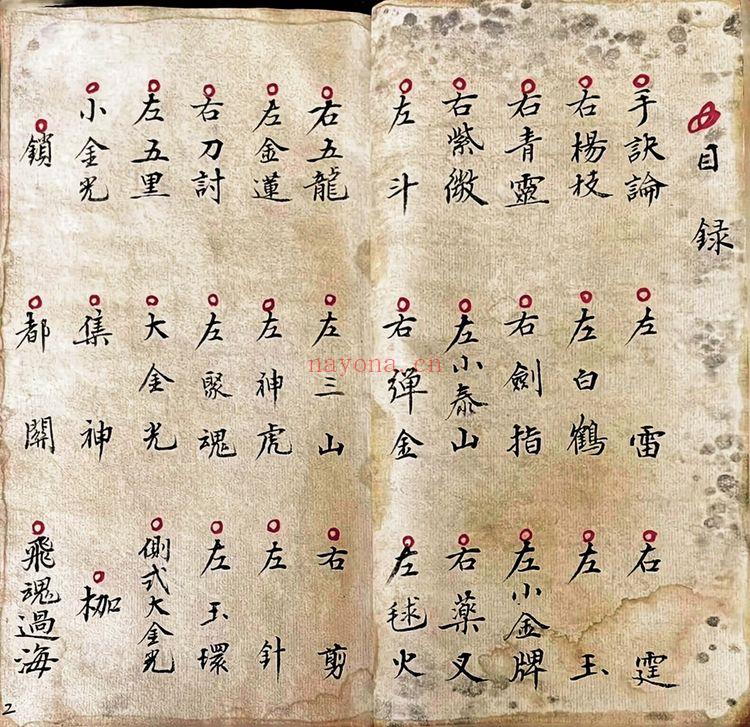 目録
手訣論 左雷 右霆
右楊枝 左白鶴 左玉
右青靈 右劍指 左小金牌
右紫微 左小泰山 右藥叉
左斗 右彈金 左毬火
右五龍 左三山 右剪
左金蓮 左神虎 左針
右刀討 左聚魂 左玉環
左五里 大金光 側式大金光
小金光 集神 枷
鎖 都關 飛魂過海
nayona.cn
2